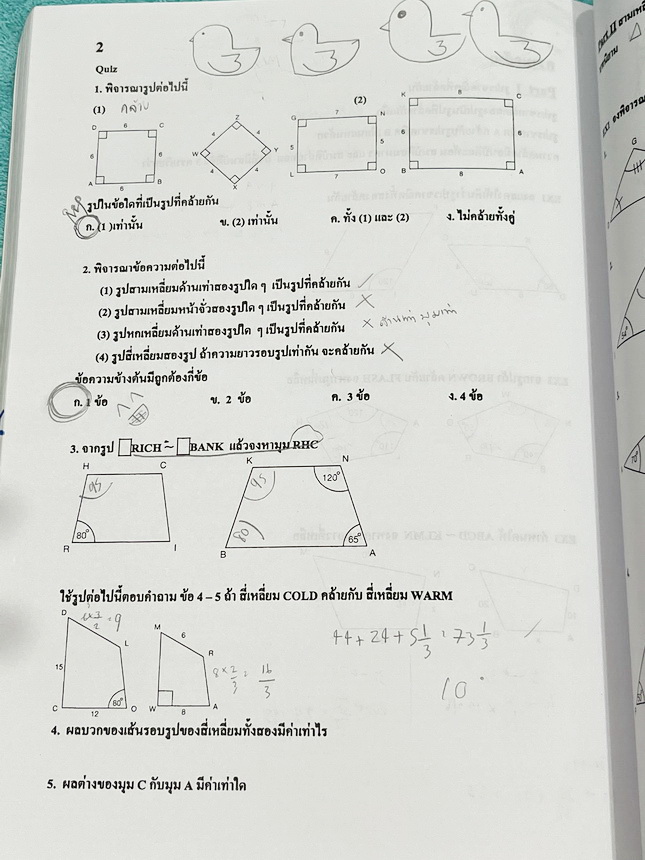 2
3 3 3 3
Quiz
1. พิจารณารูปต่อไปนี้
(1) คล้าย (2)
D 6 C 6 6 A 6 B
Z 4 4 W Y 4 4 X
G 7 N 5 5 L 7 O
K 8 C 6 6 B 8 A
รูปในข้อใดที่เป็นรูปที่คล้ายกัน
ก. (1 )เท่านั้น ข. (2) เท่านั้น ค. ทั้ง (1) และ (2) ง. ไม่คล้ายทั้งคู่
2. พิจารณาข้อความต่อไปนี้
(1) รูปสามเหลี่ยมด้านเท่าสองรูปใด ๆ เป็นรูปที่คล้ายกัน
(2) รูปสามเหลี่ยมหน้าจั่วสองรูปใด ๆ เป็นรูปที่คล้ายกัน
(3) รูปหกเหลี่ยมด้านเท่าสองรูปใด ๆ เป็นรูปที่คล้ายกัน
(4) รูปสี่เหลี่ยมสองรูป ถ้าความยาวรอบรูปเท่ากัน จะคล้ายกัน
ข้อความข้างต้นมีถูกต้องกี่ข้อ
ก. 1 ข้อ ข. 2 ข้อ ค. 3 ข้อ ง. 4 ข้อ
3. จากรูป □RICH ~ □BANK แล้วจงหามุม RHC
H C 95 80° R I
K N 95 120° 80 65° B A
ใช้รูปต่อไปนี้ตอบคำถาม ข้อ 4 – 5 ถ้า สี่เหลี่ยม COLD คล้ายกับ สี่เหลี่ยม WARM
D L 15 80° C 12 O
M 6 R W 8 A
8 × 2/3 = 16/3
44 + 24 + 5 1/3 = 73 1/3
10°
4. ผลบวกของเส้นรอบรูปของสี่เหลี่ยมทั้งสองมีค่าเท่าไร
5. ผลต่างของมุม C กับมุม A มีค่าเท่าใด